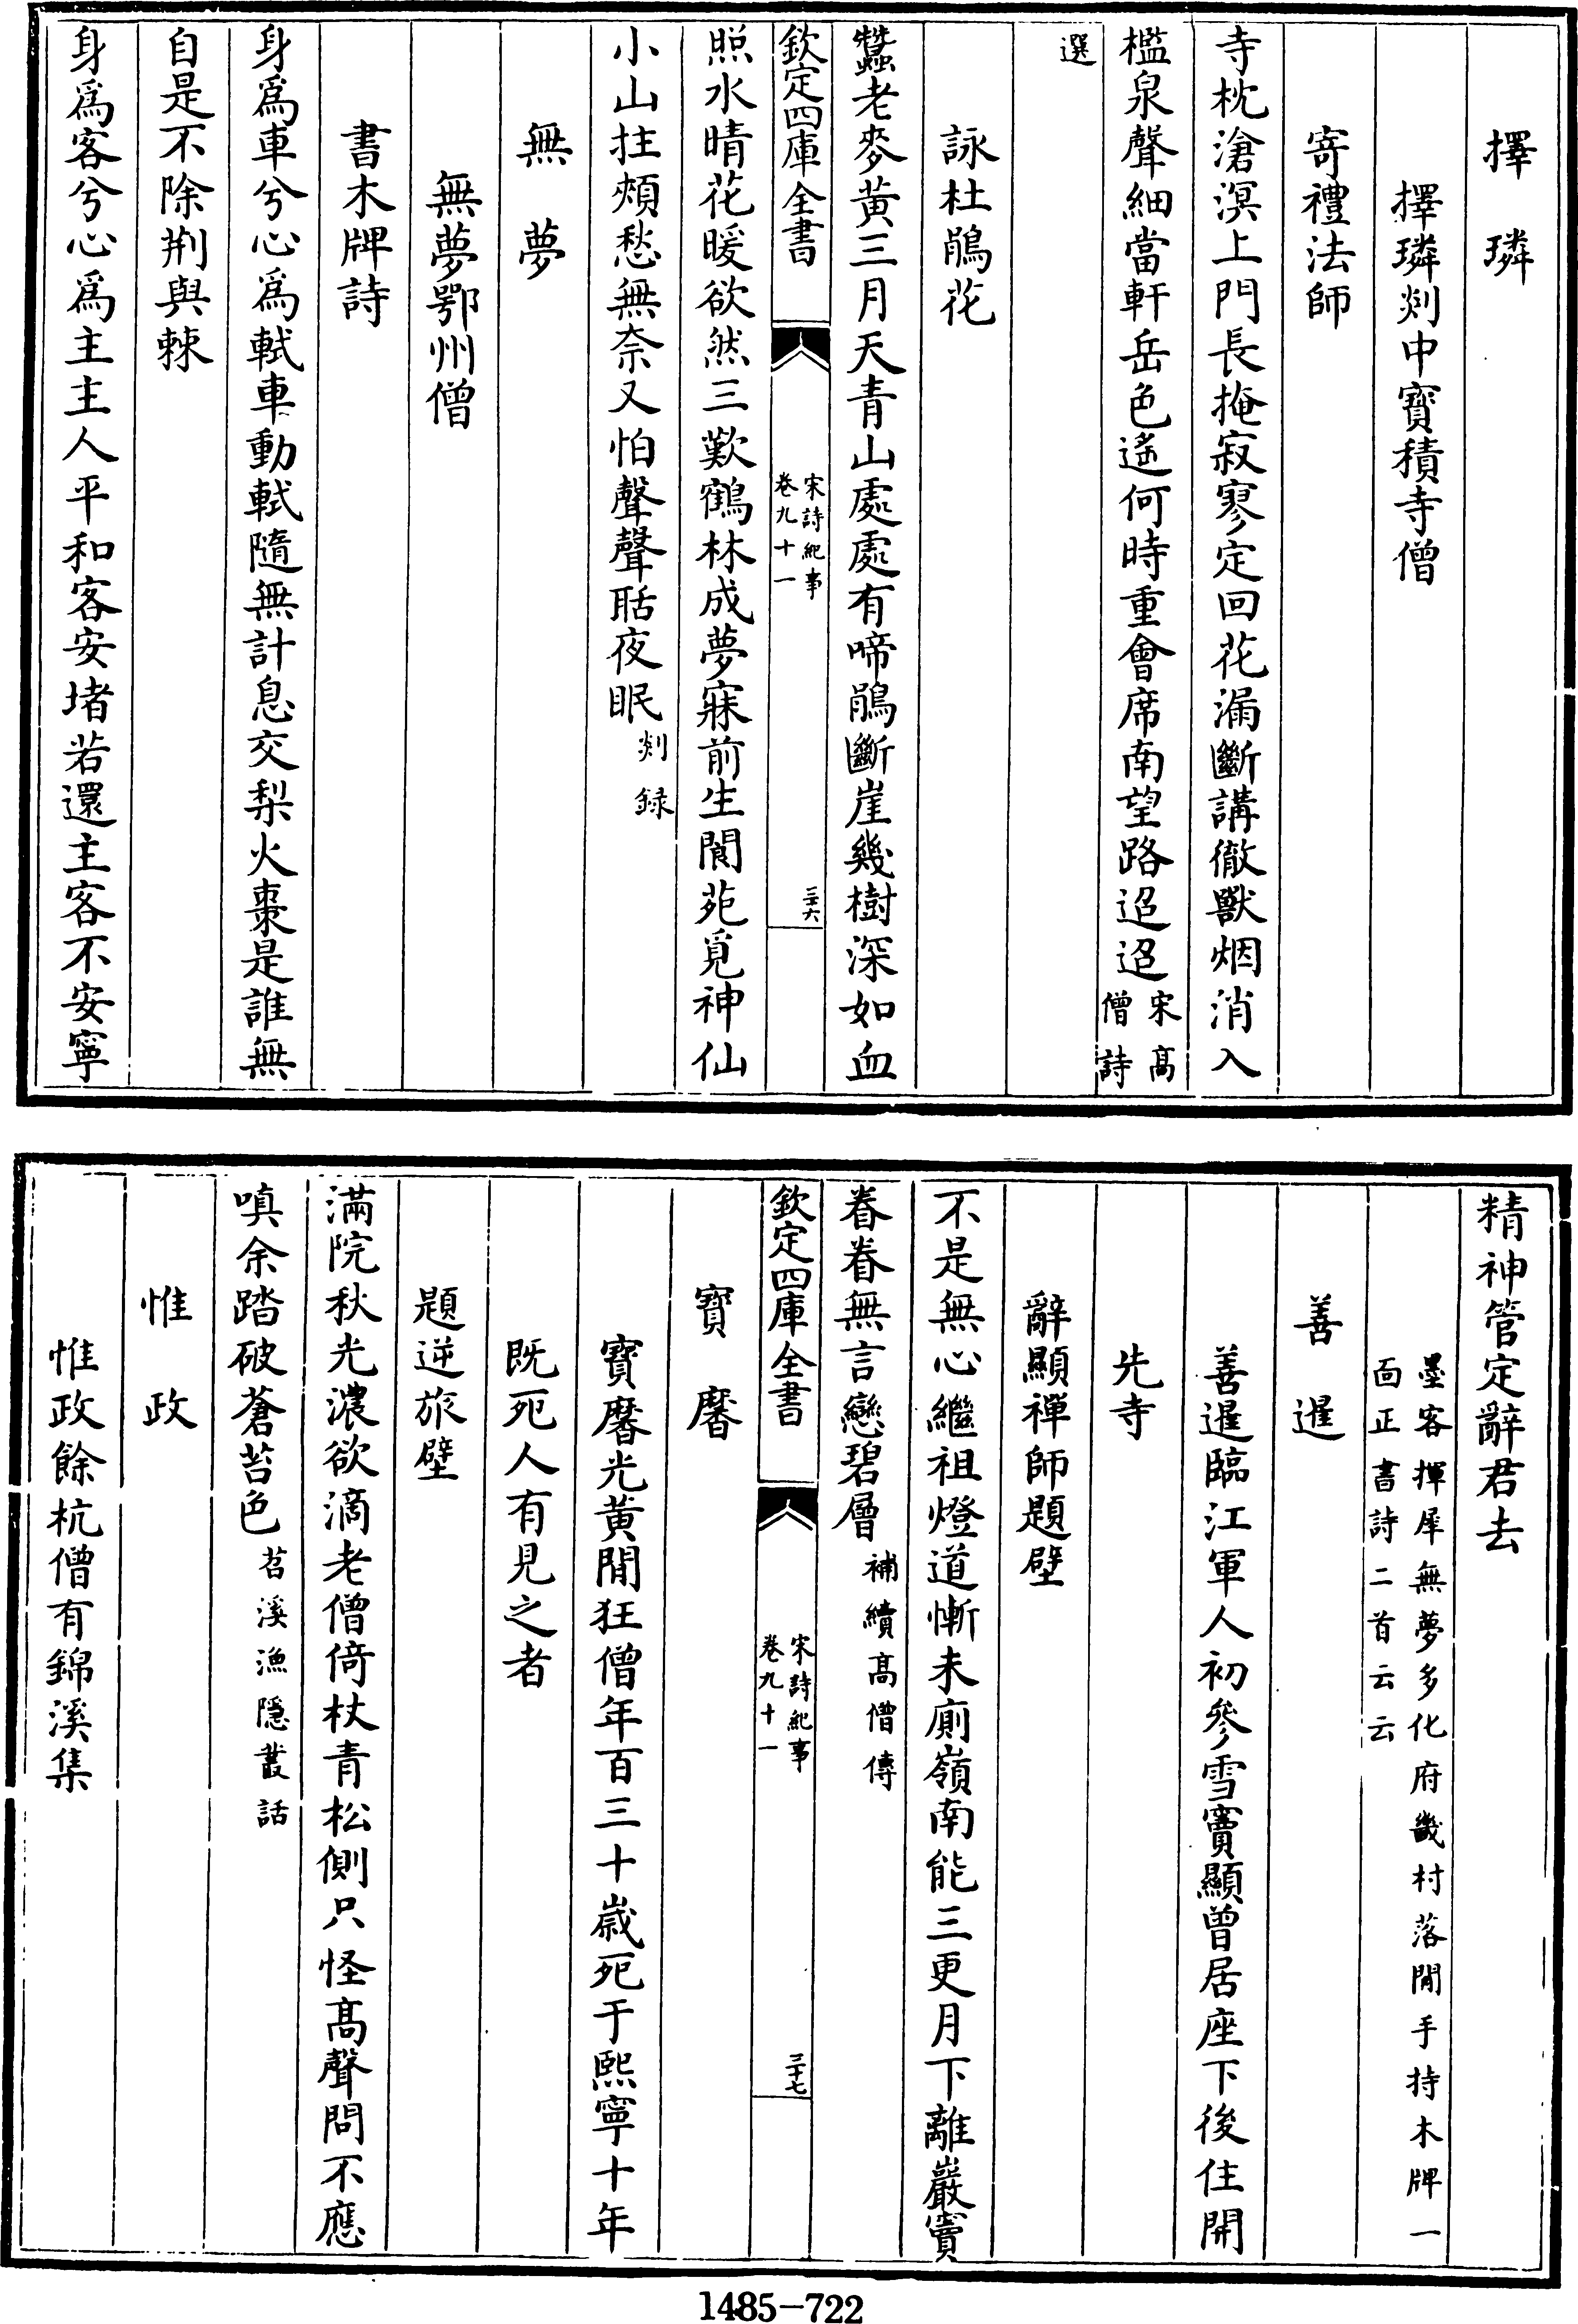 擇璘
擇璘剡中寳積寺僧
寄禮法師
寺枕滄溟上門長掩寂寥定回花漏斷講徹獸烟消入
檻泉聲細當軒岳色遙何時重會席南望路迢迢宋髙
僧詩
選
詠杜鵑花
蠶老麥黃三月天青山處處有啼鵑斷崖幾樹深如血
欽定四庫全書
宋詩紀事
卷九十一
三十六
照水晴花暖欲然三歎鶴林成夢寐前生閬苑覓神仙
小山拄頰愁無奈又怕聲聲聒夜眠剡録
無夢
無夢鄂州僧
書木牌詩
身爲車兮心爲軾車動軾隨無計息交梨火棗是誰無
自是不除荆與棘
身爲客兮心爲主主人平和客安堵若還主客不安寧
精神管定辭君去
墨客揮犀無夢多化府畿村落間手持木牌一
面正書詩二首云云
善暹
善暹臨江軍人初參雪竇顯曽居座下後住開
先寺
辭顯禪師題壁
不是無心繼祖燈道慚未廁嶺南能三更月下離巖竇
眷眷無言戀碧層補續髙僧傳
欽定四庫全書
宋詩紀事
卷九十一
三十七
寳麐
寳麐光黄間狂僧年百三十嵗死于熙寧十年
既死人有見之者
題逆旅壁
滿院秋光濃欲滴老僧倚杖青松側只怪髙聲問不應
嗔余踏破蒼苔色苕溪漁隱叢話
惟政
惟政餘杭僧有錦溪集
1485-722